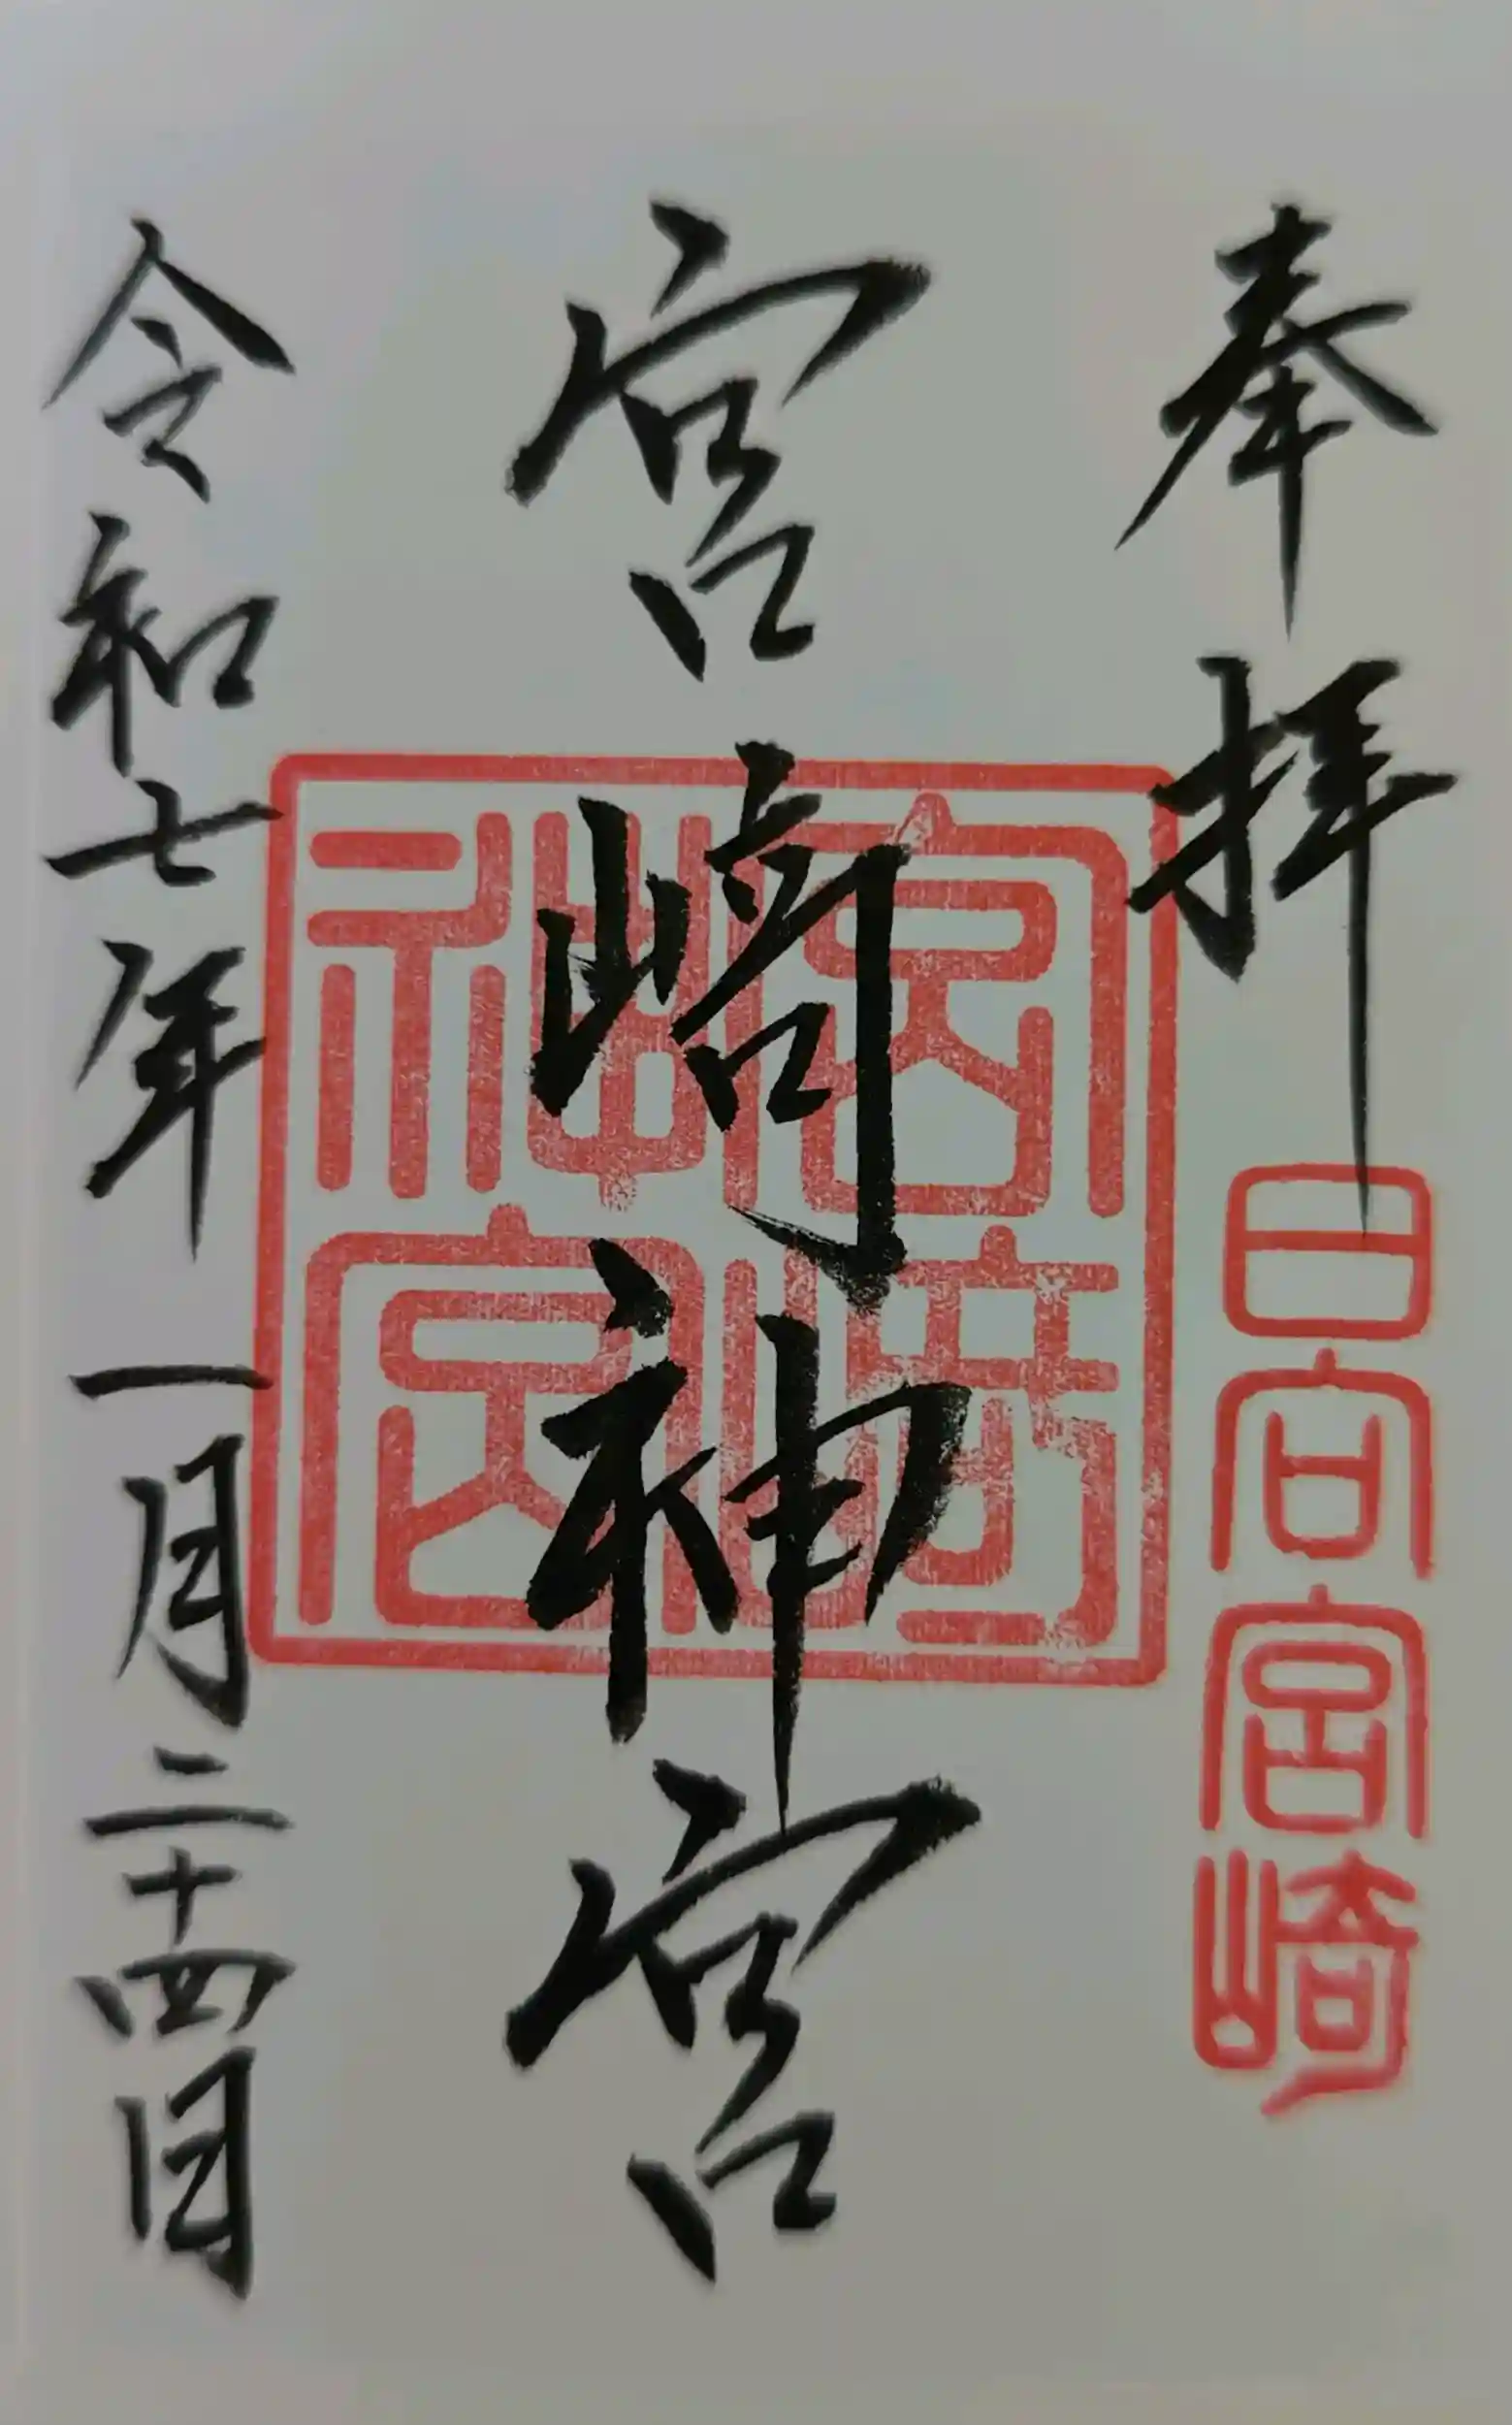 奉拝
日向宮崎
宮崎神宮
宮崎神宮
令和七年一月二十四日